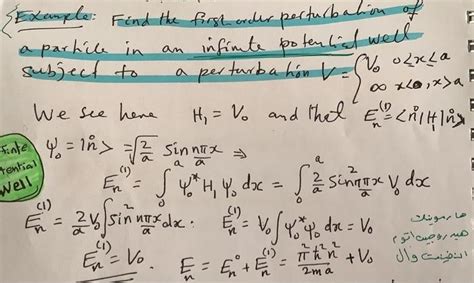 Example: Find the first order perturbation of
a particle in an infinite potential well
subject to a perturbation V = { V₀ 0≤x≤a
∞ x<0, x>a
We see here H₁ = V₀ and that Eₙ⁽¹⁾ = <n°|H₁|n°>
finte
tential
well
ψ₀ = |n°> = √(2/a) sin nπx/a ⇒
Eₙ⁽¹⁾ = ∫₀ᵃ ψ₀* H₁ ψ₀ dx = ∫₀ᵃ 2/a sin² nπx/a V₀ dx
Eₙ⁽¹⁾ = 2/a V₀ ∫₀ᵃ sin² nπx/a dx : Eₙ⁽¹⁾ = V₀ ∫ ψ₀* ψ₀ dx = V₀
Eₙ⁽¹⁾ = V₀. Eₙ = Eₙ° + Eₙ⁽¹⁾ = π²ħ²n²/2ma² + V₀
هارمونیک
هیدروجن اتوم
انفنت وال